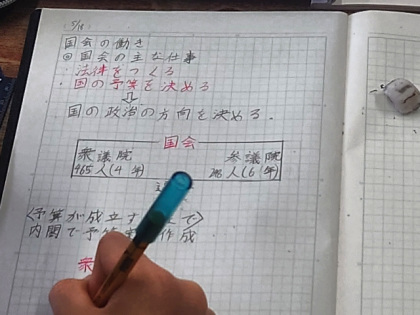 5/18
国会の働き
◎国会の主な仕事
・法律をつくる
・国の予算を決める
⇩
国の政治の方向を決める。
国会
衆議院 参議院
465人(4年) 人(6年)
<予算が成立す て>
内閣で予算 作成
衆